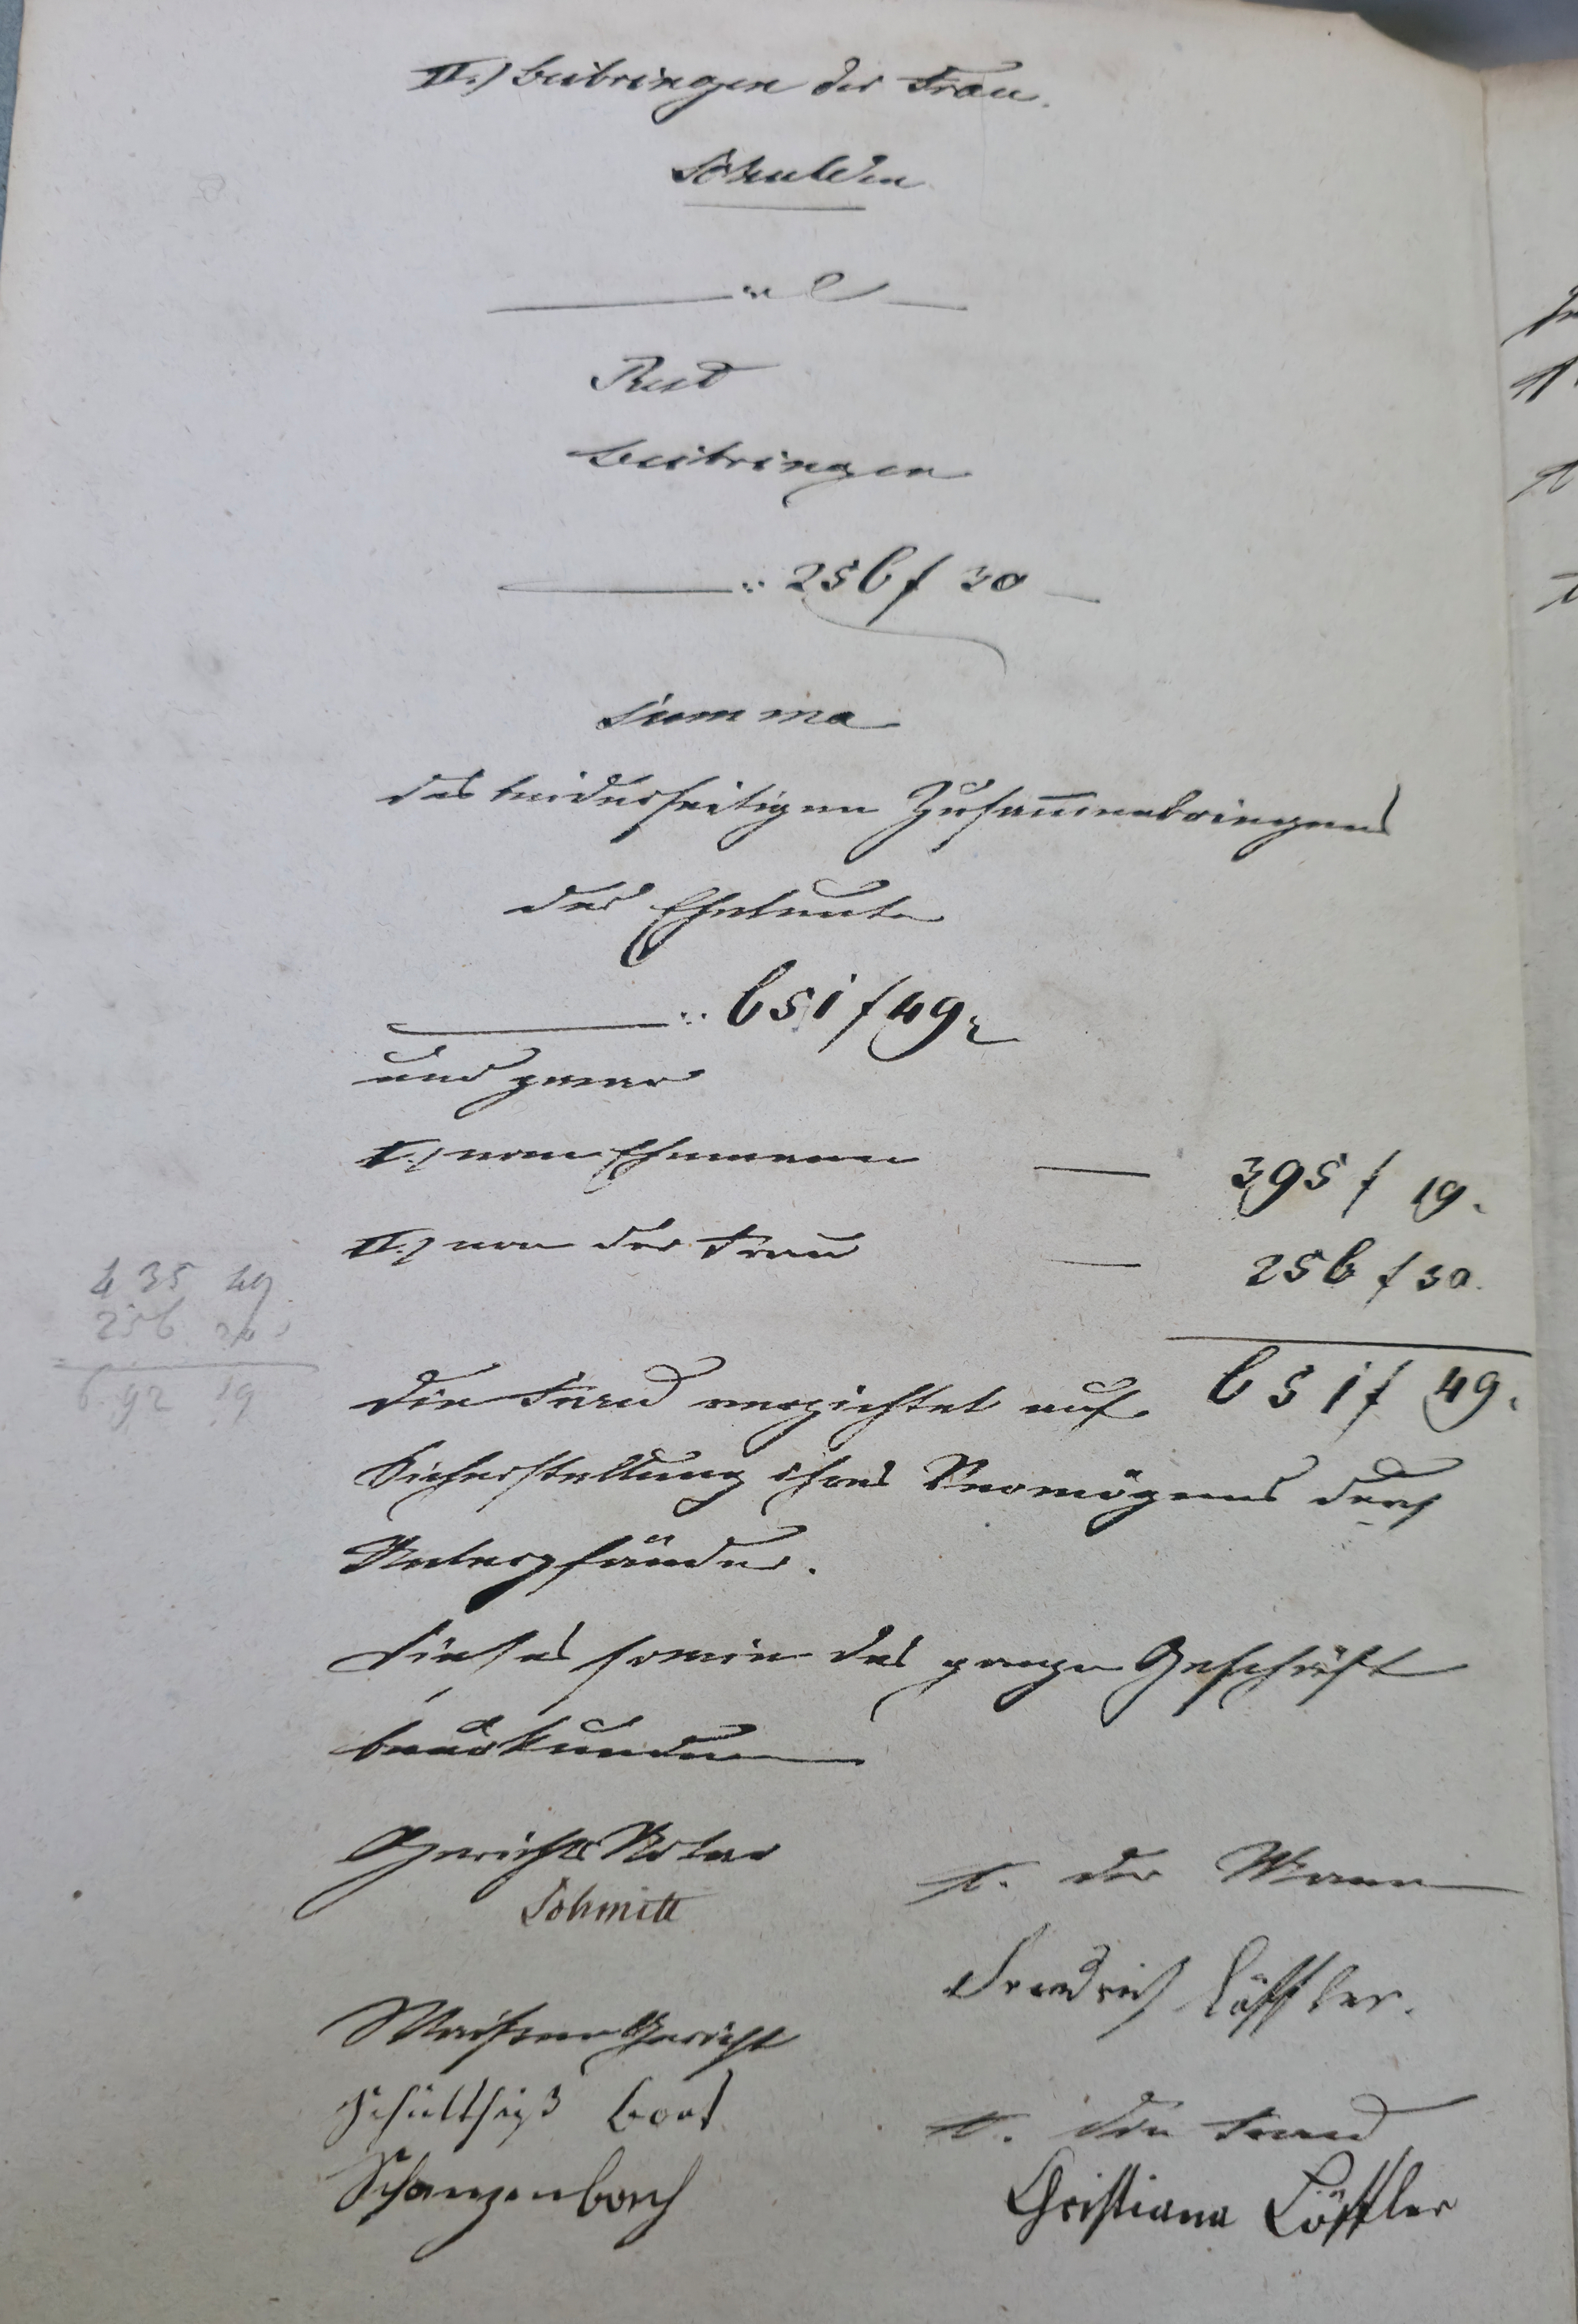 II.) Beibringen der Frau.
Schulden
Rest
Beibringen
" 256 f 30
Summa
des beiderseitigen Zusammenbringens
der Eheleute
" 651 f 49
und zwar
I.) vom Ehemann — 395 f 19.
II.) von der Frau — 256 f 30.
651 f 49.
435 49
256 30
692 19
Die Frau verzichtet auf
Sicherstellung ihres Vermögens durch
Unterpfänder.
Dieses sowie das ganze Geschäft
beurkunden
Gerichts Notar
Schmitt
t. der Mann
Friedrich Löffler.
Waisen Gericht
Schultheiß
Schanzenbach
t. die Frau
Christiana Löffler